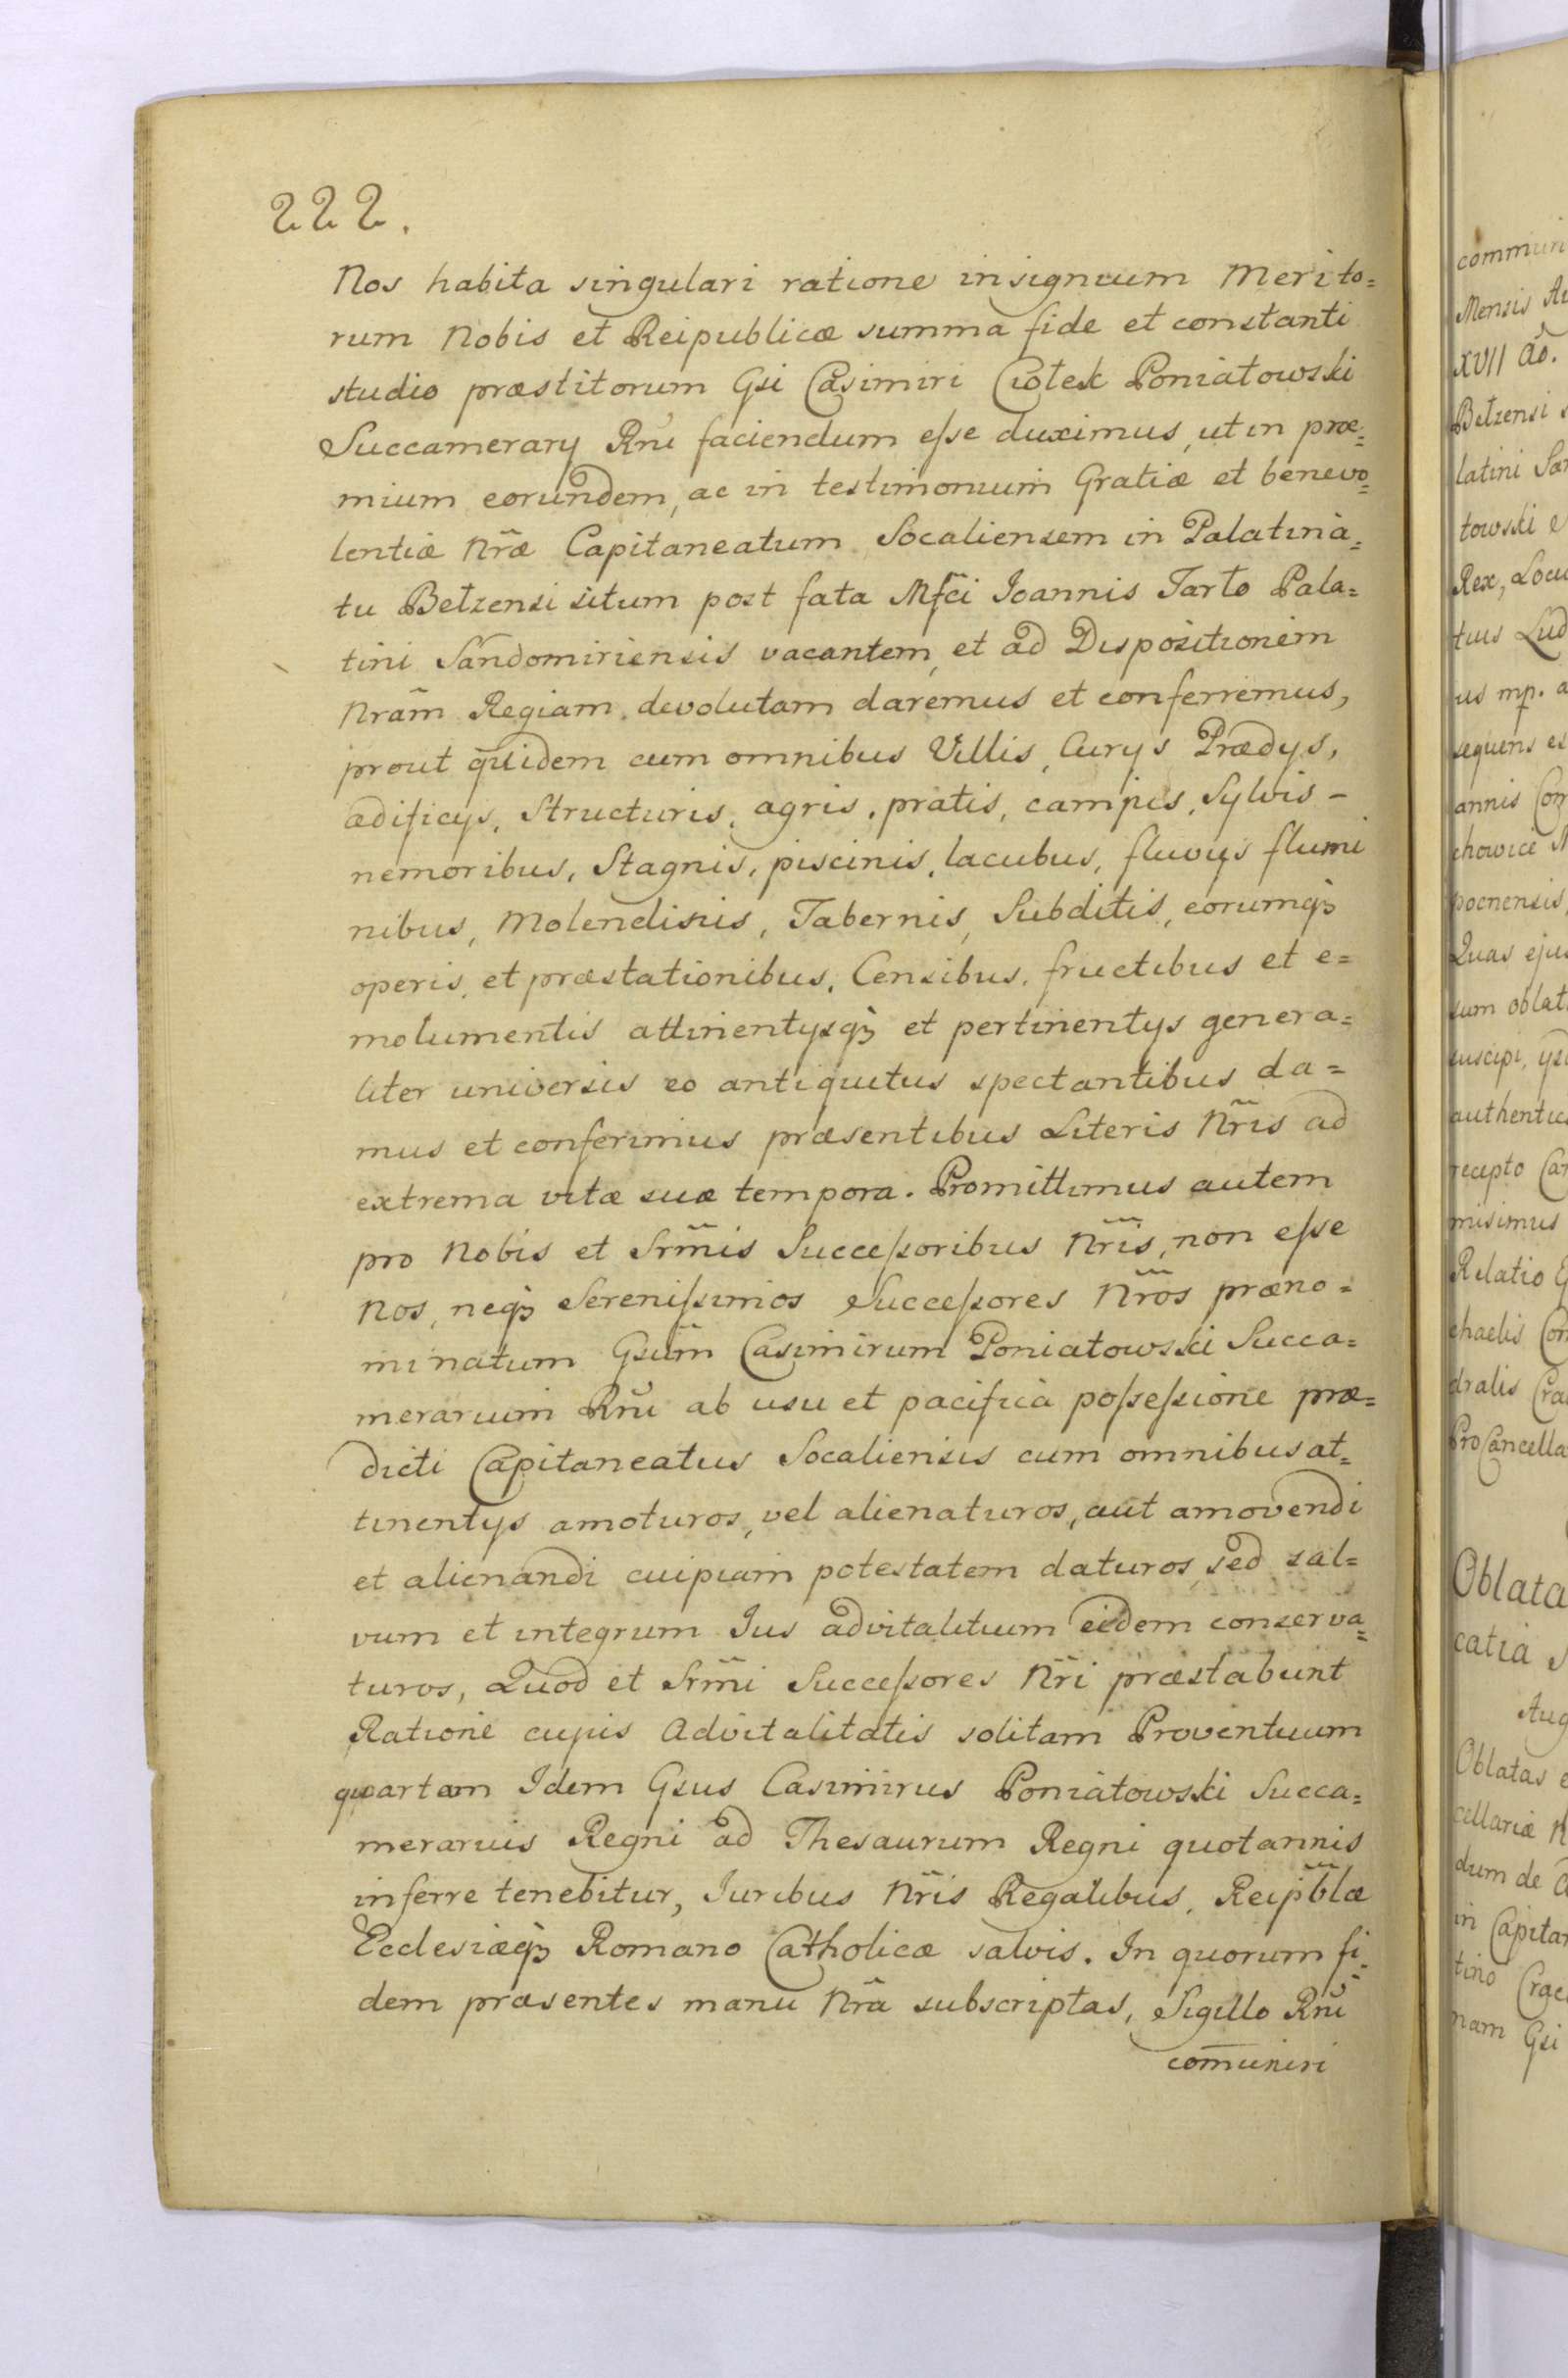 222.
Nos habita singulari ratione insignium Merito=
rum Nobis et Reipublicæ summa fide et constanti
studio præstitorum Gsi Casimiri Ciołek Poniatowski
Succamerarÿ Rni faciendum eſse duximus, ut in præ=
mium eorundem, ac in testimonium Gratiæ et benevo=
lentiæ Nr̃æ Capitaneatum Socaliensem in Palatina=
tu Bełzensi situm post fata Mfci Ioannis Tarło Pala=
tini Sandomiriensis vacantem, et ad Dispositionem
Nram̃ Regiam devolutam daremus et conferremus,
prout quidem cum omnibus Villis, Curÿs Prædÿs,
ædificÿs, Structuris, agris, pratis, campis, Sylvis –
nemoribus, Stagnis, piscinis, lacubus, fluvÿs flumi
nibus, Molendinis, Tabernis, Subditis, eorumqꝫ
operis, et præstationibus, Censibus, fructibus et e=
molumentis attinentÿsqꝫ et pertinentÿs genera=
liter universis eo antiquitus spectantibus da=
mus et conferimus præsentibus Literis Nr̃is ad
extrema vitæ suæ tempora. Promittimus autem
pro Nobis et Srm̃is Succeſsoribus Nr̃is, non eſse
Nos, neqꝫ Sereniſsimos Succeſsores Nr̃os præno=
minatum Gsum̃ Casimirum Poniatowski Succa=
merarium Rni ab usu et pacifica poſseſsione præ=
dicti Capitaneatus Socaliensis cum omnibus at=
tinentÿs amoturos, vel alienaturos, aut amovendi
et alienandi cuipiam potestatem daturos, sed sal=
vum et integrum Ius advitalitium eidem conserva=
turos, Quod et Srm̃i Succeſsores Nr̃i præstabunt
Ratione cujus Advitalitatis solitam Proventuum
quartam Idem Gsus Casimirus Poniatowski Succa=
merarius Regni ad Thesaurum Regni quotannis
inferre tenebitur, Iuribus Nr̃is Regalibus, Reip̃blæ
Ecclesiæqꝫ Romano Catholicæ salvis. In quorum fi=
dem præsentes manu Nr̃a subscriptas, Sigillo Rni
com̃uniri
Mensis
XVII ao.
Bełzensi
latini
towski
Rex,
tius
us mp.
sequens
annis
chowice
Quas
sum
suscipi,
recepto
misimus
Relatio
chaelis
dralis
Oblata
catia
Oblatas
cellariæ
dum de
in
tino
nam Gsi